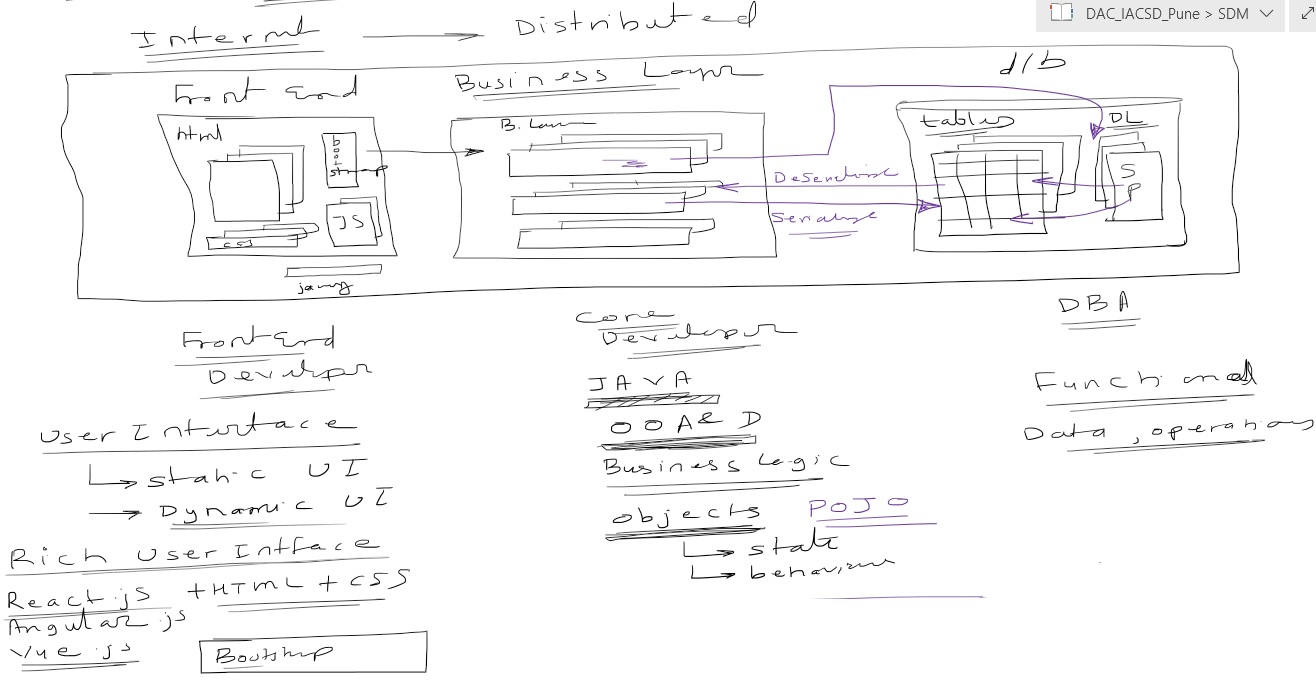 DAC_IACSD_Pune > SDM
Internet → Distributed
Front End
Business Layer
d/b
html
boot
strap
JS
css
B. Layer
tables
DL
SP
Deserialise
Serialise
Front End
Developer
User Interface
static UI
Dynamic UI
Rich User Intface
React.js + HTML + CSS
Angular.js
Vue.js
Bootstrap
Core
Developer
JAVA
OOA & D
Business Logic
objects
POJO
state
behaviour
DBA
Functional
Data, operations